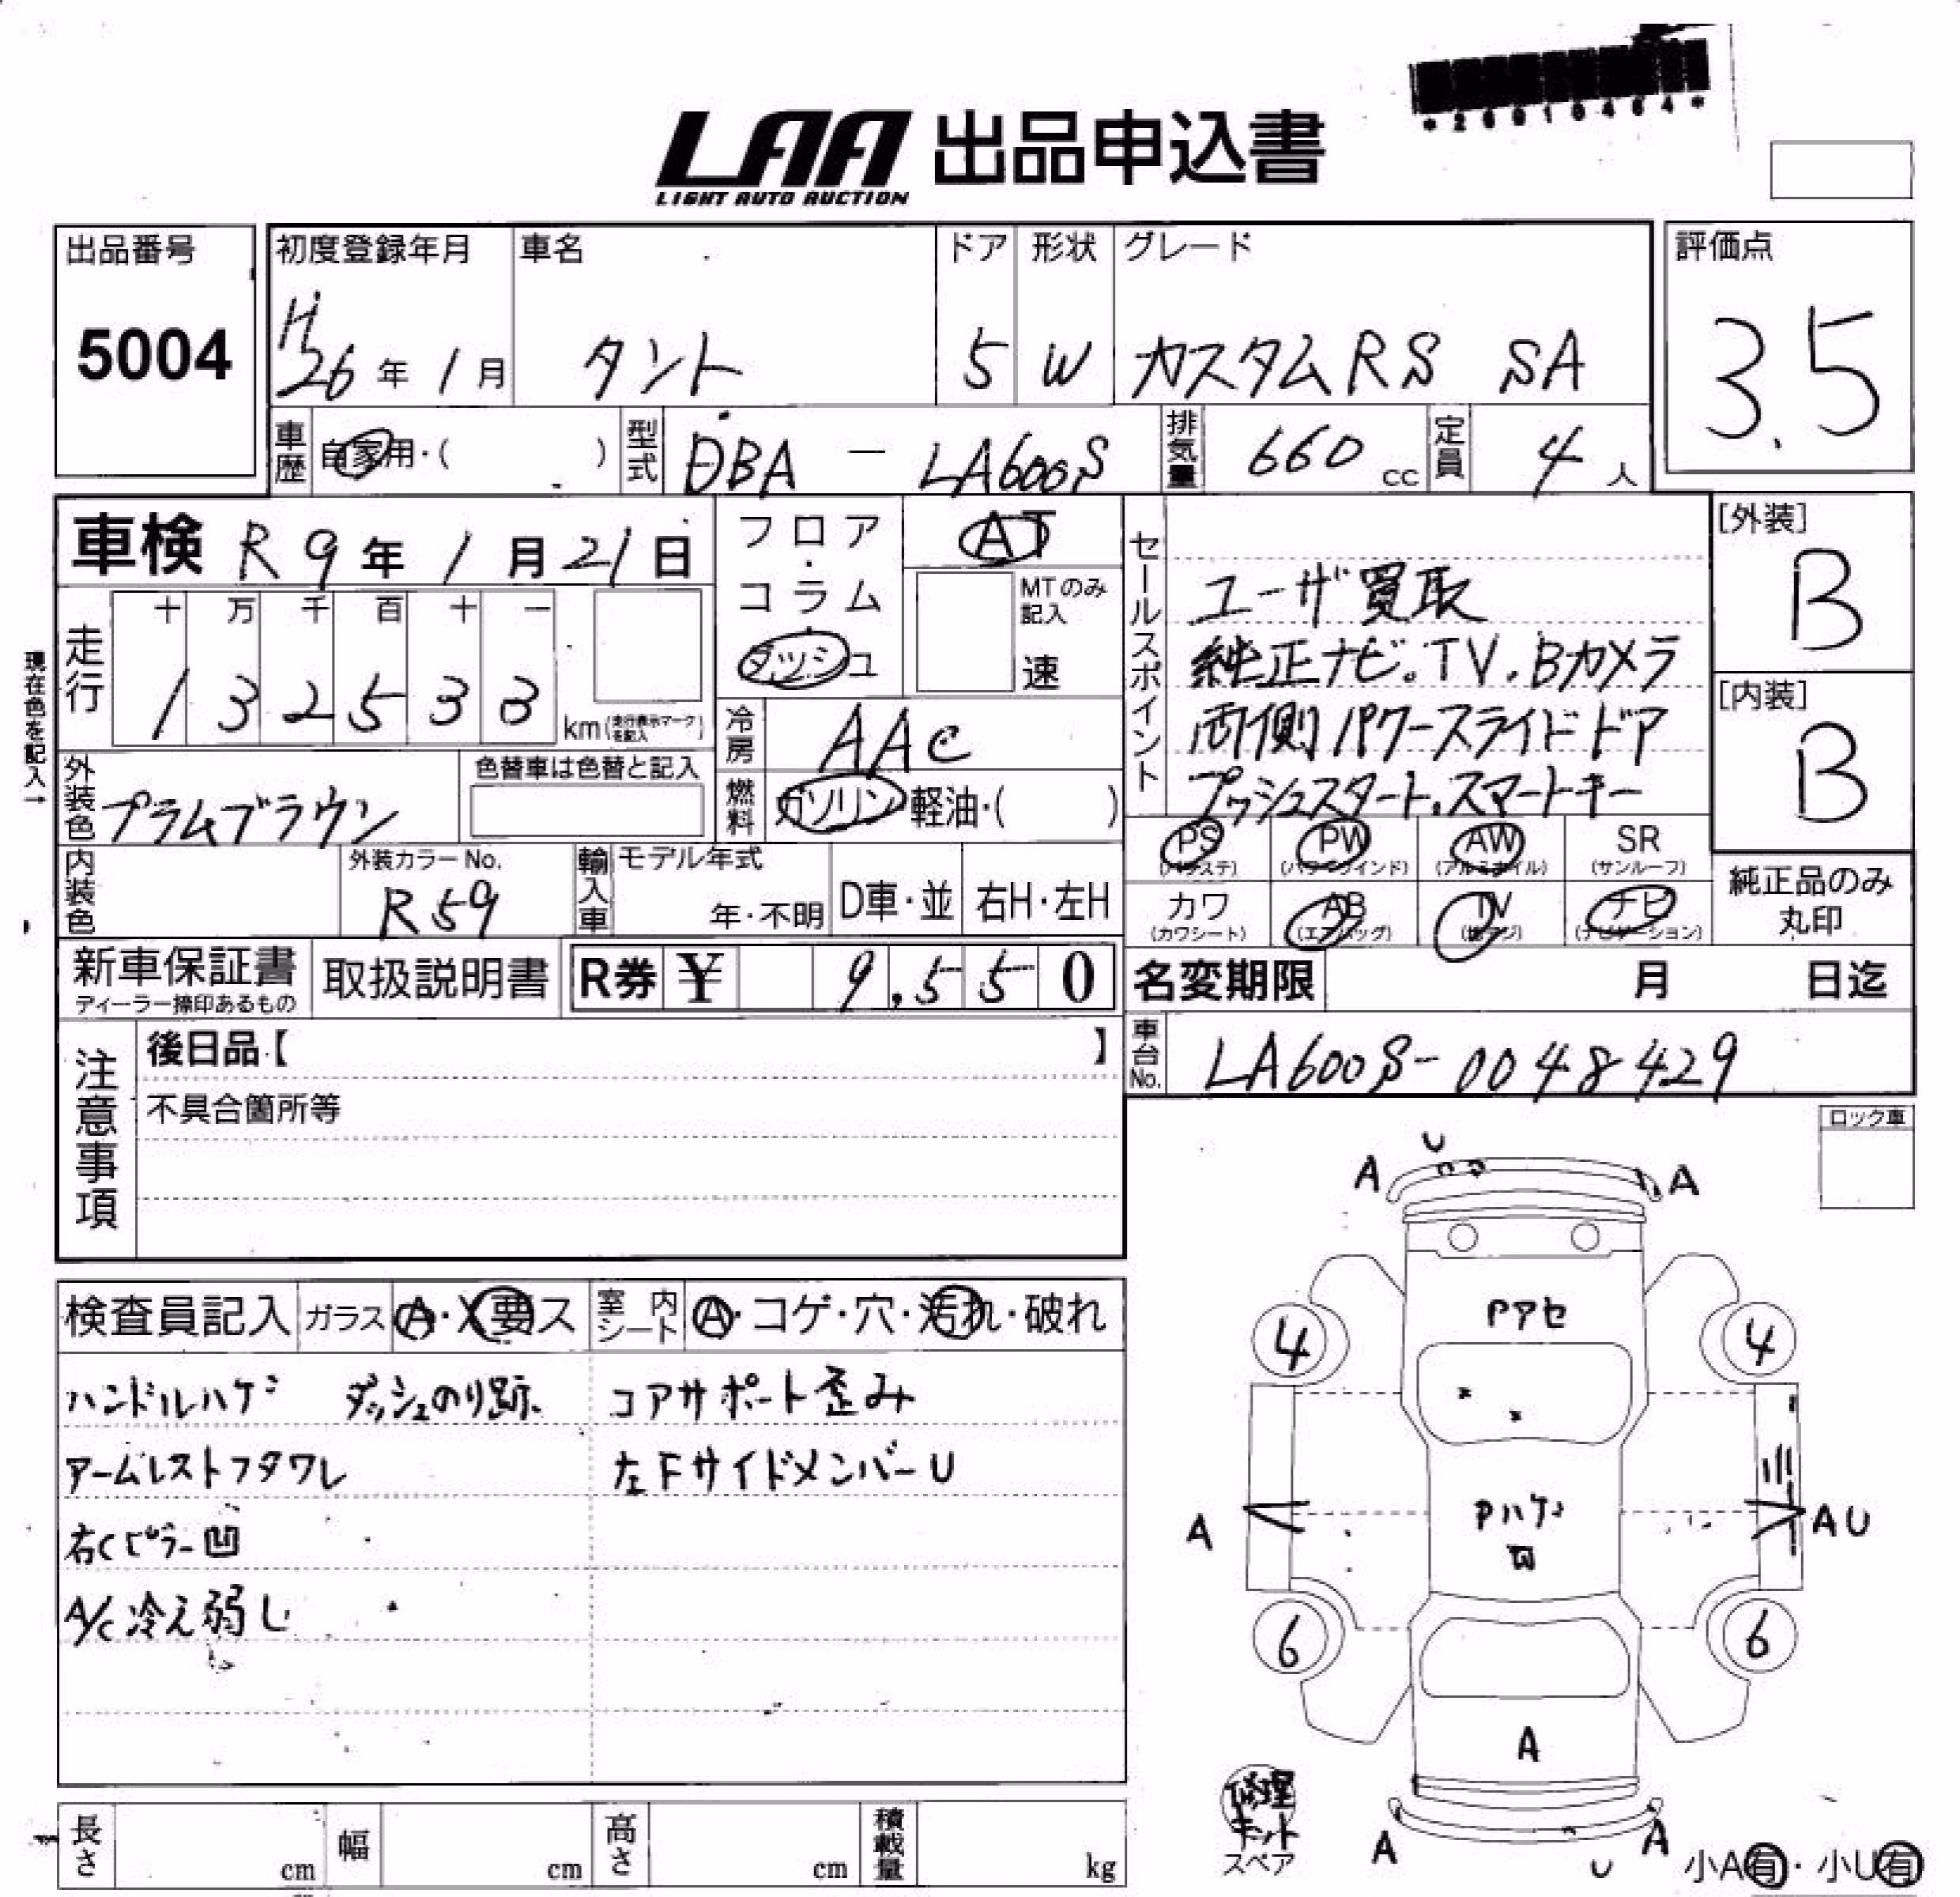 *26910464*
LAA 出品申込書
LIGHT AUTO AUCTION
出品番号 初度登録年月 車名 ドア 形状 グレード 評価点
5004 H26年1月 タント 5 W カスタムRS SA 3.5
車歴 自家用・( ) 型式 DBA - LA600S 排気量 660 cc 定員 4 人
車検 R9年1月21日 フロア・コラム・ダッシュ AT
MTのみ記入 速
現在色を記入→
走行 十 万 千 百 十 一
1 3 2 5 3 3 km(走行表示マークを記入)
冷房 AAC
外装色 プラムブラウン 色替車は色替と記入 燃料 ガソリン 軽油・( )
内装色 外装カラーNo. R59 輸入車 モデル年式 年・不明 D車・並 右H・左H
セールスポイント
ユーザ買取
純正ナビ.TV.Bカメラ
両側パワースライドドア
プッシュスタート.スマートキー
[外装] B
[内装] B
PS (パワステ) PW (パワーウインド) AW (アルミホイル) SR (サンルーフ)
カワ (カワシート) AB (エアバッグ) TV (地デジ) ナビ (ナビゲーション)
純正品のみ
丸印
新車保証書 取扱説明書 R券 ¥ 9,550
ディーラー捺印あるもの
名変期限 月 日迄
車台No. LA600S-0048429
注意事項 後日品【 】
不具合箇所等
ロック車
検査員記入 ガラス A・X要ス 室内シート A・コゲ・穴・汚れ・破れ
ハンドルハゲ ダッシュのり跡 コアサポート歪み
アームレストフタワレ 左FサイドメンバーU
右Cピラー凹
A/C冷え弱し
U
A A
Pアセ
4 4
Pハゲ
凹
A AU
6 6
A
修理
キット
スペア
A A
U
小A有・小U有
長さ cm 幅 cm 高さ cm 積載量 kg